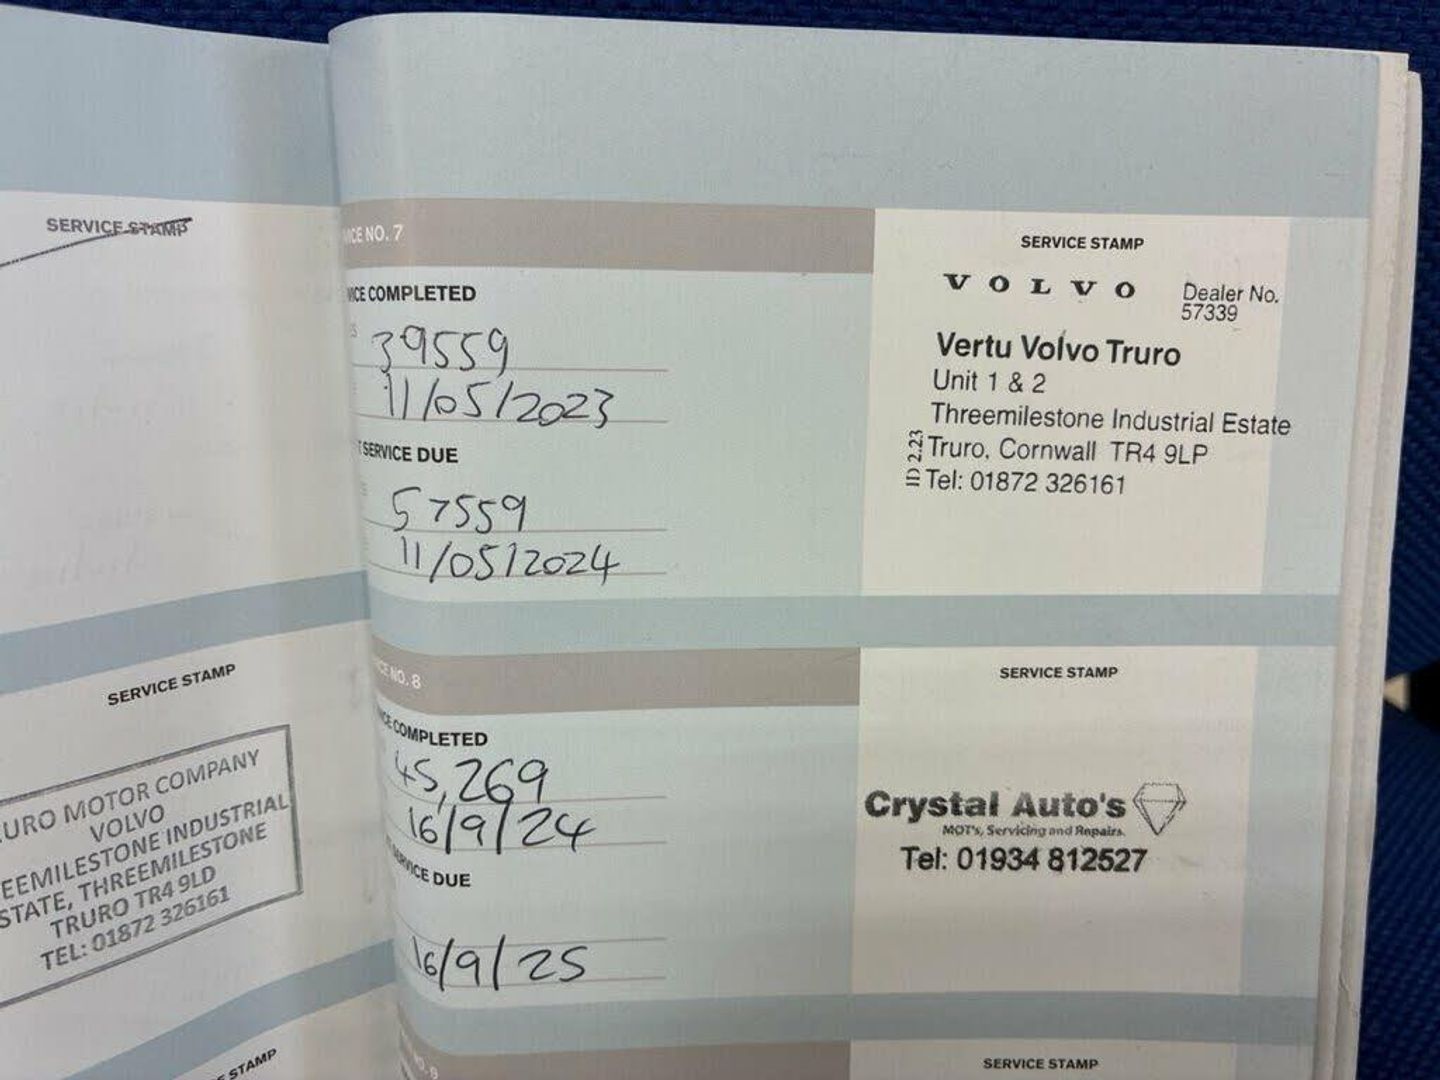 SERVICE STAMP
SERVICE STAMP
URO MOTOR COMPANY
VOLVO
EEMILESTONE INDUSTRIAL
STATE, THREEMILESTONE
TRURO TR4 9LD
TEL: 01872 326161
STAMP
ICE NO. 7
ICE COMPLETED
39559
11/05/2023
SERVICE DUE
57559
11/05/2024
SERVICE STAMP
VOLVO
Dealer No.
57339
Vertu Volvo Truro
Unit 1 & 2
Threemilestone Industrial Estate
Truro, Cornwall TR4 9LP
Tel: 01872 326161
ID 2.23
NO. 8
COMPLETED
45,269
16/9/24
SERVICE DUE
16/9/25
SERVICE STAMP
Crystal Auto's
MOT's, Servicing and Repairs.
Tel: 01934 812527
NO. 9
SERVICE STAMP